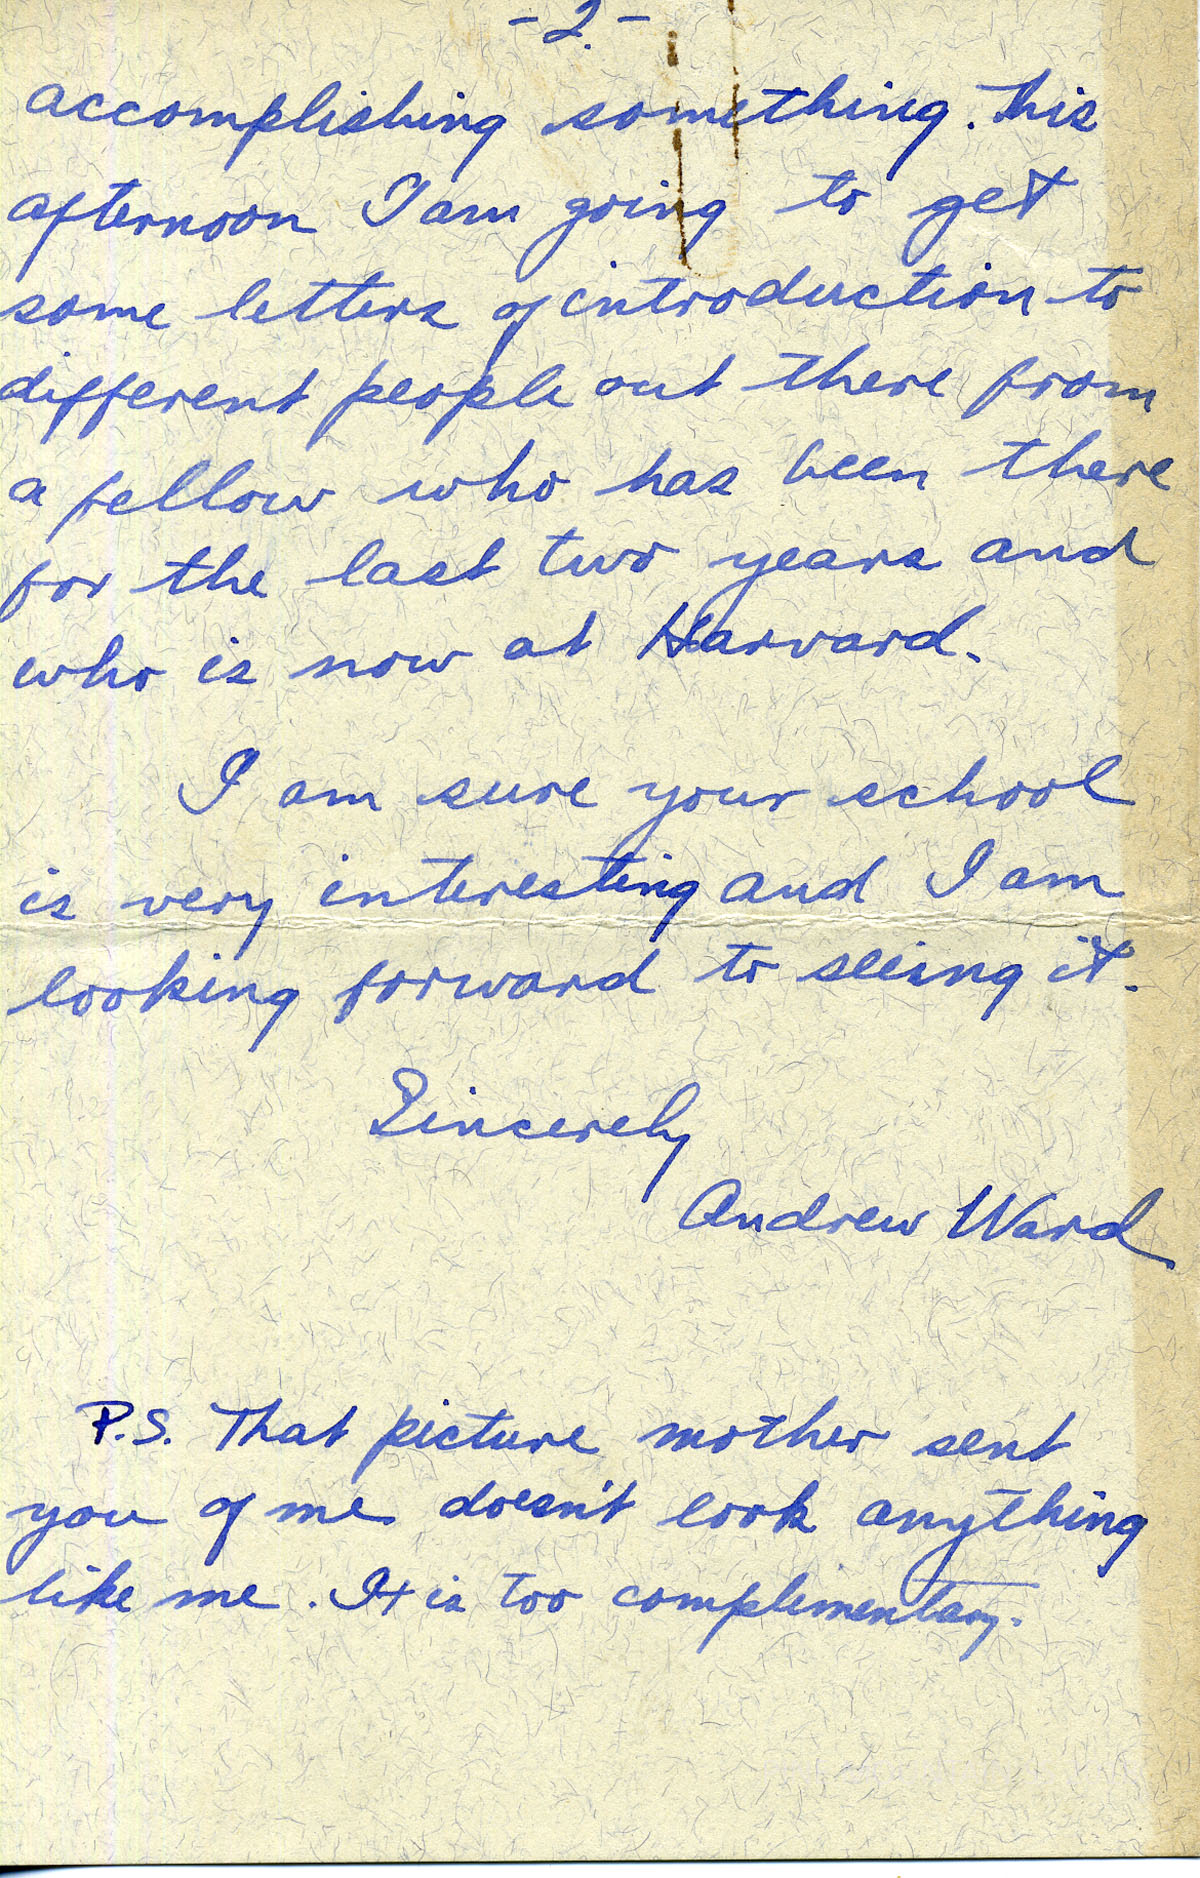 - 2. -
accomplishing something. This
afternoon I am going to get
some letters of introduction to
different people out there from
a fellow who has been there
for the last two years and
who is now at Harvard.
I am sure your school
is very interesting and I am
looking forward to seeing it.
Sincerely
Andrew Ward
P.S. That picture mother sent
you of me doesn't look anything
like me. It is too complimentary.